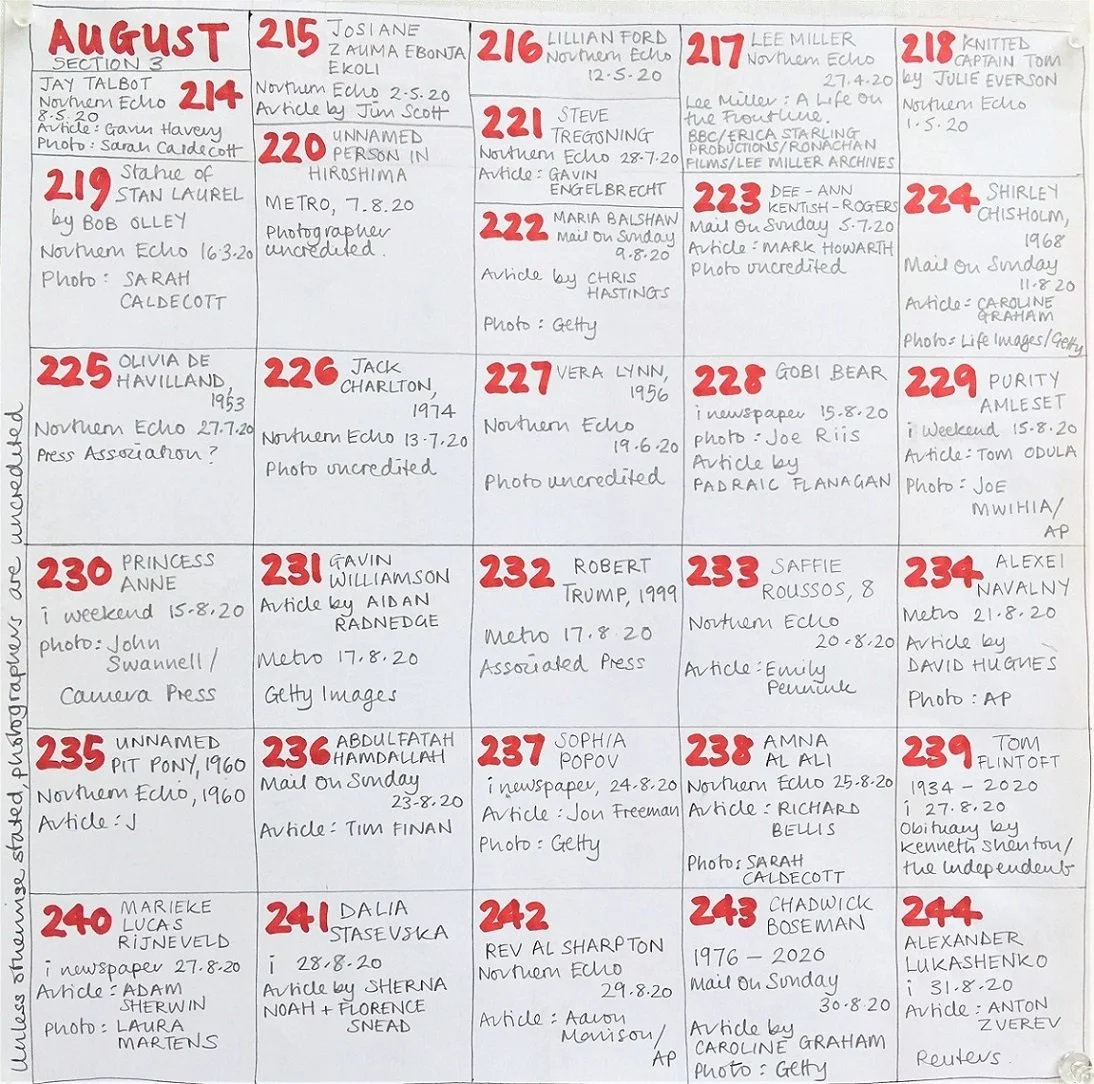 AUGUST
SECTION 3
JAY TALBOT
Northern Echo 214
8.5.20
Article: Gavin Havery
Photo: Sarah Caldecott
215 JOSIANE
ZAUMA EBONJA
EKOLI
Northern Echo 2-5.20
Article by Jim Scott
216 LILLIAN FORD
Northern Echo
12-5.20
217 LEE MILLER
Northern Echo
27.4.20
Lee Miller: A Life on
the Frontline.
BBC/ERICA STARLING
PRODUCTIONS/RONACHAN
FILMS/LEE MILLER ARCHIVES
218 KNITTED
CAPTAIN TOM
by JULIE EVERSON
Northern Echo
1.5.20
219 Statue of
STAN LAUREL
by BOB OLLEY
Northern Echo 16.3.20
Photo: SARAH
CALDECOTT
220 UNNAMED
PERSON IN
HIROSHIMA
METRO, 7.8.20
Photographer
uncredited.
221 STEVE
TREGONING
Northern Echo 28.7.20
Article: GAVIN
ENGELBRECHT
222 MARIA BALSHAW
Mail On Sunday
9.8.20
Article by CHRIS
HASTINGS
Photo: Getty
223 DEE-ANN
KENTISH-ROGERS
Mail On Sunday 5.7.20
Article: MARK HOWARTH
Photo uncredited
224 SHIRLEY
CHISHOLM,
1968
Mail On Sunday
11.8.20
Article: CAROLINE
GRAHAM
Photo: Life Images/Getty
225 OLIVIA DE
HAVILLAND,
1953
Northern Echo 27.7.20
Press Association?
226 JACK
CHARLTON,
1974
Northern Echo 13.7.20
Photo uncredited
227 VERA LYNN,
1956
Northern Echo
19.6.20
Photo uncredited
228 GOBI BEAR
i newspaper 15.8.20
photo: Joe Riis
Article by
PADRAIC FLANAGAN
229 PURITY
AMLESET
i weekend 15.8.20
Article: TOM ODULA
Photo: JOE
MWIHIA/
AP
230 PRINCESS
ANNE
i weekend 15.8.20
photo: John
Swannell/
Camera Press
231 GAVIN
WILLIAMSON
Article by AIDAN
RADNEDGE
Metro 17.8.20
Getty Images
232 ROBERT
TRUMP, 1999
Metro 17.8.20
Associated Press
233 SAFFIE
ROUSSOS, 8
Northern Echo
20.8.20
Article: Emily
Pennink
234 ALEXEI
NAVALNY
Metro 21.8.20
Article by
DAVID HUGHES
Photo: AP
235 UNNAMED
PIT PONY, 1960
Northern Echo, 1960
Article: J
236 ABDULFATAH
HAMDALLAH
Mail On Sunday
23.8.20
Article: TIM FINAN
237 SOPHIA
POPOV
i newspaper, 24.8.20
Article: Jon Freeman
Photo: Getty
238 AMNA
AL ALI
Northern Echo 25.8.20
Article: RICHARD
BELLIS
Photo: SARAH
CALDECOTT
239 TOM
FLINTOFT
1934 - 2020
i 27.8.20
Obituary by
Kenneth Shenton/
the Independent
240 MARIEKE
LUCAS
RIJNEVELD
i newspaper 27.8.20
Article: ADAM
SHERWIN
Photo: LAURA
MARTENS
241 DALIA
STASEVSKA
i 28.8.20
Article by SHERNA
NOAH + FLORENCE
SNEAD
242
REV AL SHARPTON
Northern Echo
29.8.20
Article: Aaron
Morrison/
AP
243 CHADWICK
BOSEMAN
1976 - 2020
Mail On Sunday
30.8.20
Article by
CAROLINE GRAHAM
Photo: Getty
244
ALEXANDER
LUKASHENKO
i 31.8.20
Article: ANTON
ZVEREV
Reuters.
Unless otherwise stated, photographers are uncredited